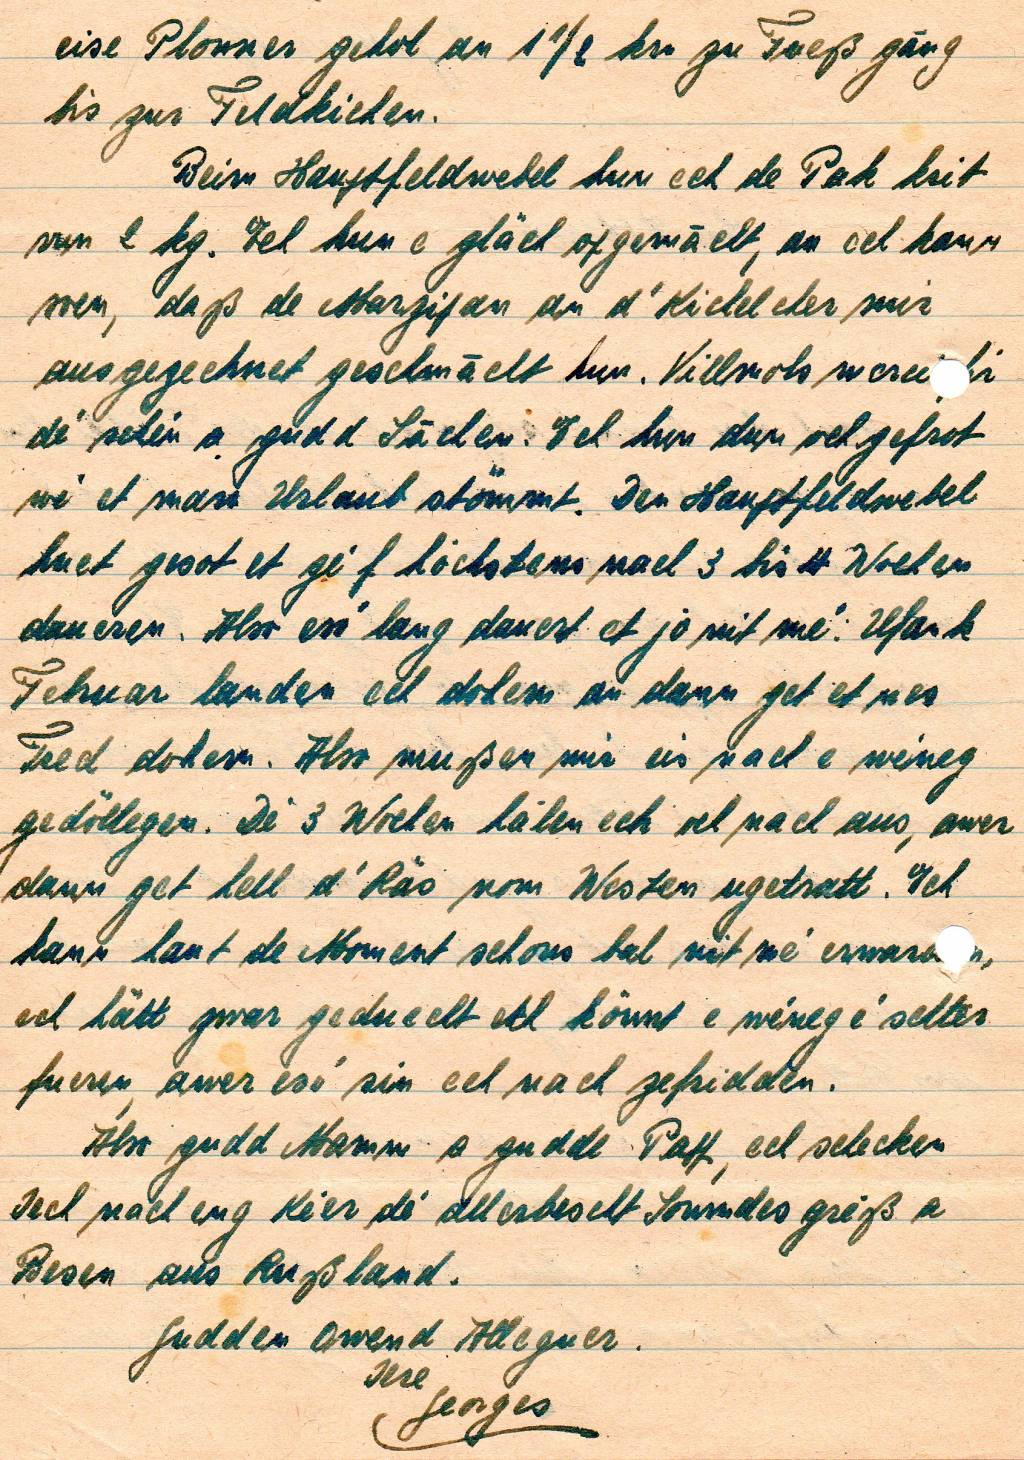 eise Plonner geholl an 1 1/2 km zu Fueß gäng
bis zur Feldkichen.
Beim Hauptfeldwebel hun ech de Pak krit
vun 2 kg. Ech hun e gläch opgemācht, an ech kann
soen, daß de Marzipan an d'Kichelcher mir
ausgezechnet geschmācht hun. Villmols merci fir
dé schéin a gudd Sāchen. Ech hun dun och gefrot
wé et mam Urlaub stömmt. Den Hauptfeldwebel
huet gesot et géif höchstens nach 3 bis 4 Wochen
daueren. Also esó lang dauert et jo nit mé. Ufank
Februar landen ech dohem an dann get et nes
Fred dohem. Also mußen mir eis nach e wéineg
gedöllegen. Dé 3 Wochen hālen ech och nach aus, awer
dann get hell d'Räs vom Westen ugetratt. Ech
kann haut de Moment schons bal nit mé erwarden,
ech hätt zwar geduecht ech könnt e wéineg é selter
fueren, awer esó sin ech nach zefridden.
Also gudd Mamm a gudde Papp, ech schecken
Iech nach eng Kéier dé allerbescht Sonndesgréiß a
Besen aus Rußland.
Gudden Owend Alleguer.
Iere
Georges